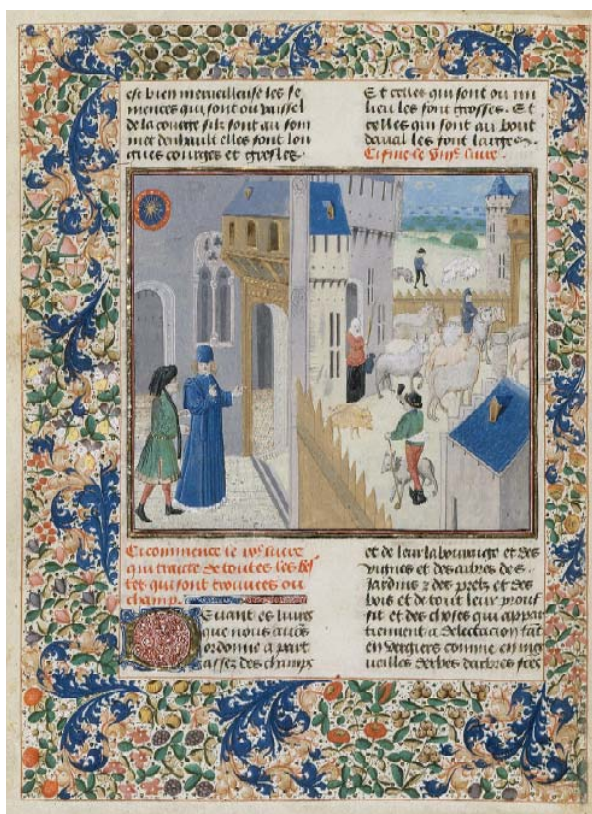 est bien merveilleuse les se
mences qui sont ou vaissel
de la courge silz sont au som
met denhault elles sont lon
gues courges et grosles
Et celles qui sont ou mi
lieu les font grosses. Et
celles qui sont au bout
daual les font larges.
Cy fine le viije liure.
Cy commence le ixe liure
qui traicte de toutes les bes
tes qui sont trouuees ou
champ.
Deuant es liures
que nous auons
ordonne a part
assez des champs
et de leur labourage et des
vignes et des arbres des
Jardins et des pretz et des
bois et de tout leur prouf
fit et des choses qui appar
tiennent a delectacion tant
en vergiers comme en mer
ueilles derbes darbres